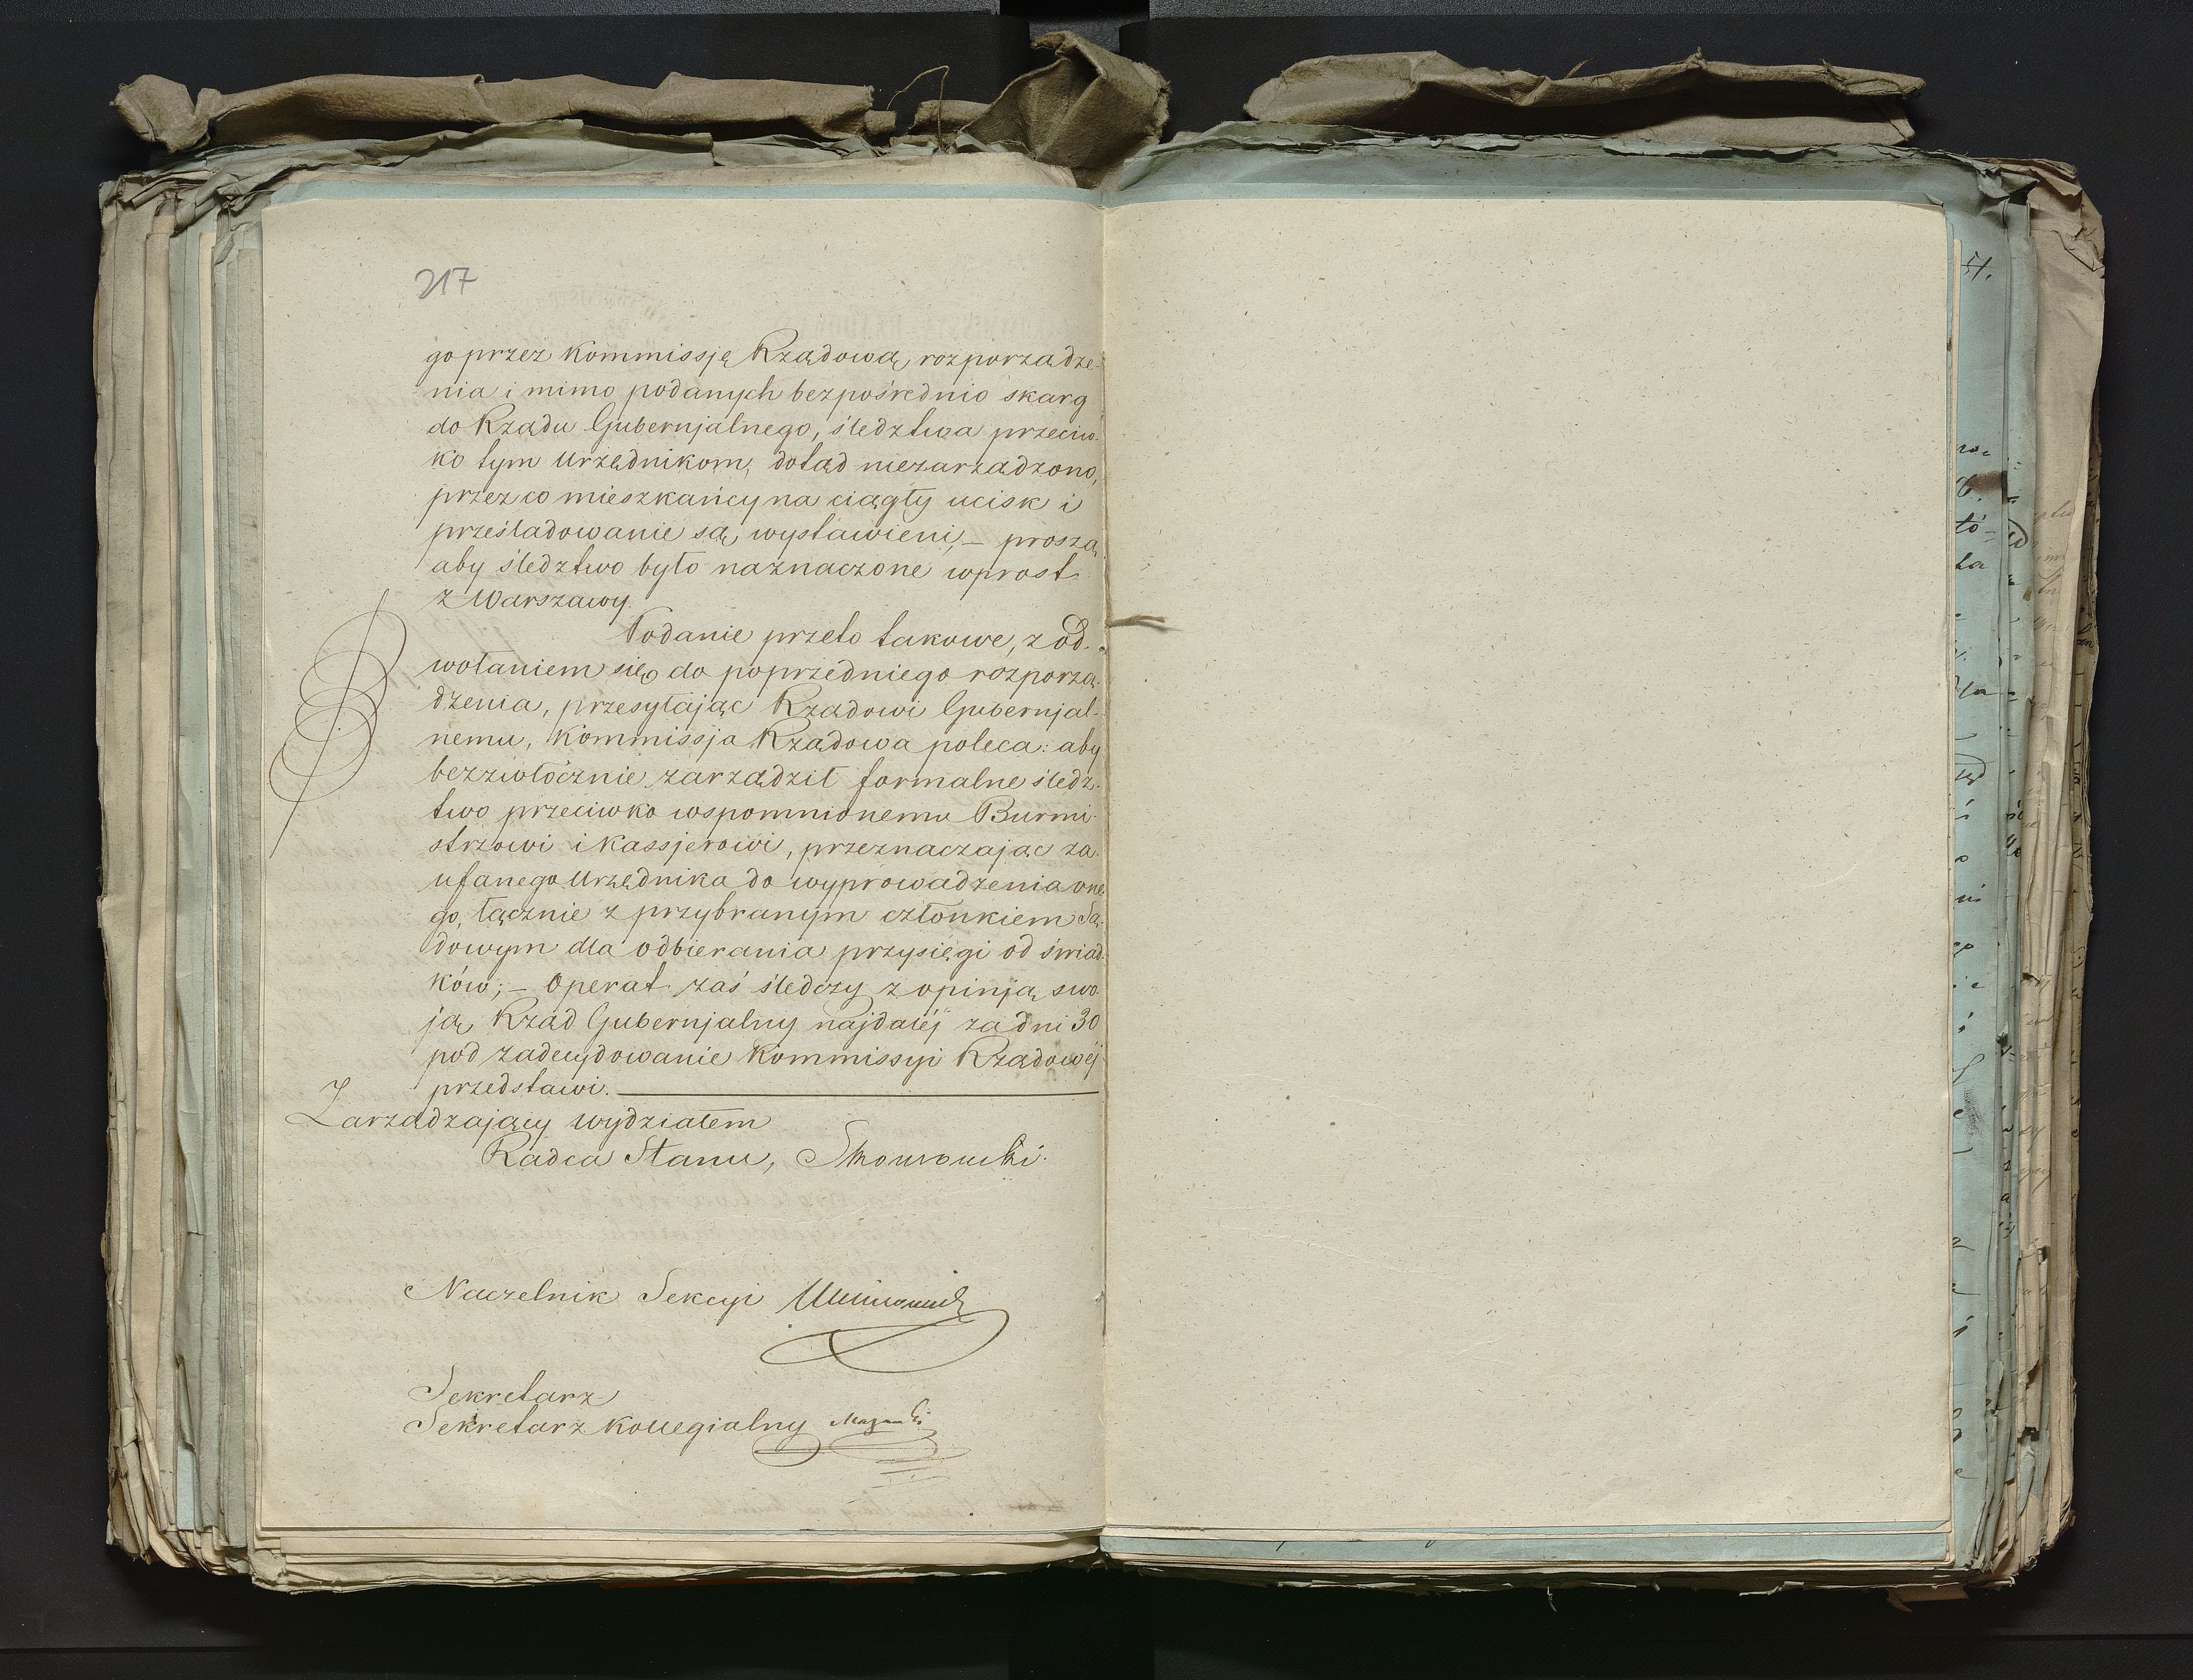 217
go przez Kommissję Rządową rozporządze-
nia i mimo podanych bezpośrednio skarg
do Rządu Gubernjalnego, śledztwa przeciw-
ko tym Urzędnikom, dotąd niezarządzono,
przez co mieszkańcy na ciągły ucisk i
prześladowanie są wystawieni, – proszą,
aby śledztwo było naznaczone wprost
z Warszawy.
Podanie przeto takowe, z od-
wołaniem się do poprzedniego rozporzą-
dzenia, przesyłając Rządowi Gubernjal-
nemu, Kommissja Rządowa poleca: aby
bezzwłócznie zarządził formalne śledz-
two przeciwko wspomnionemu Burmi-
strzowi i Kassjerowi, przeznaczając za-
ufanego Urzędnika do wyprowadzenia one-
go, łącznie z przybranym członkiem Są-
dowym dla odbierania przysięgi od świad-
ków; – Operat zaś śledczy z opinją swo-
ją Rząd Gubernjalny najdaléj za dni 30
pod zadecydowanie Kommissyi Rządowéj
przedstawi.
Zarządzający Wydziałem
Radca Stanu,
Naczelnik Sekcyi
Sekretarz
Sekretarz Kollegialny